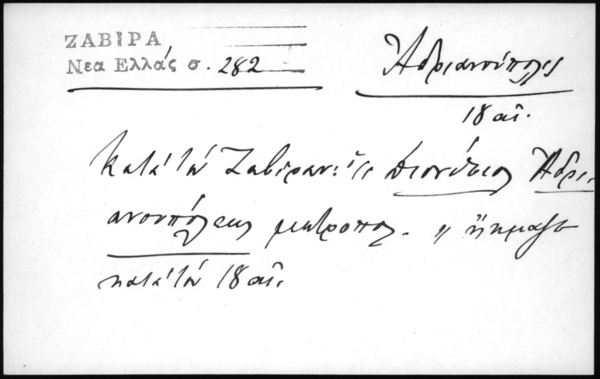 ΖΑΒΙΡΑ
Νεα Ελλάς σ. 282
Ἀδριανούπολις
18 αἰ.
Κατὰ τὸν Ζαβίραν: Διονύσιος Ἀδρι-
ανουπόλεως μητροπολ. ἤκμασε
κατὰ τὸν 18 αἰ.